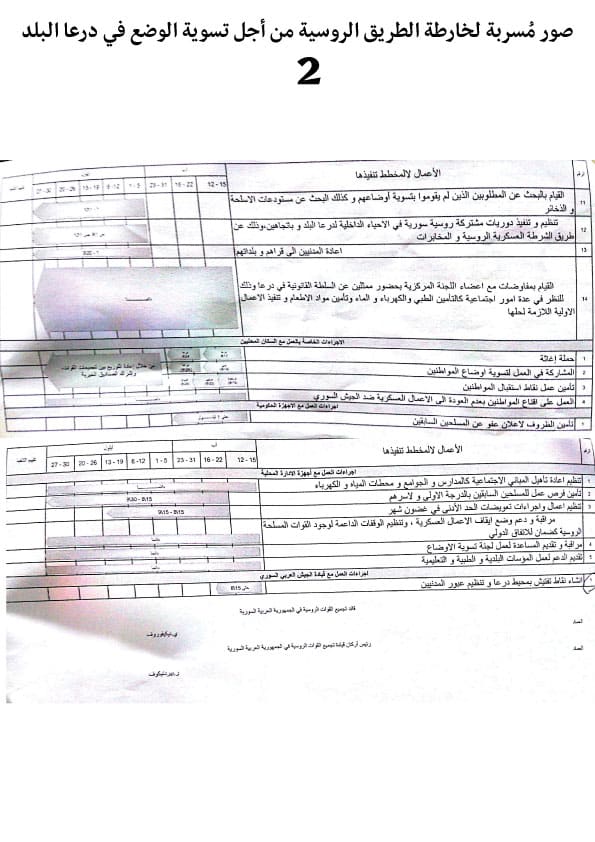 صور مُسربة لخارطة الطريق الروسية من أجل تسوية الوضع في درعا البلد
2
الأعمال لالمخطط تنفيذها
اب
12 - 15
16 - 22
23 - 31
1 - 5
6 -12
13 - 19
20 - 26
27 - 30
القيام بالبحث عن المطلوبين الذين لم يقوموا بتسوية أوضاعهم و كذلك البحث عن مستودعات الاسلحة
و الذخائر
12
تنظيم و تنفيذ دوريات مشتركة روسية سورية في الاحياء الداخلية لدرعا البلد و باتجاهين،وذلك عن
طريق الشرطة العسكرية الروسية و المخابرات
13
اعادة المدنيين الى قراهم و بلداتهم
14
القيام بمفاوضات مع اعضاء اللجنة المركزية بحضور ممثلين عن السلطة القانونية في درعا وذلك
للنظر في عدة امور اجتماعية كالتأمين الطبي والكهرباء و الماء وتأمين مواد الاطعام و تنفيذ الاعمال
الاولية اللازمة لحلها
الاجراءات الخاصة بالعمل مع السكان المحليين
حملة إغاثة
المشاركة في العمل لتسوية اوضاع المواطنين
تأمين عمل نقاط استقبال المواطنين
العمل على اقناع المواطنين بعدم العودة الى الاعمال العسكرية ضد الجيش السوري
اجراءات العمل مع الاجهزة الحكومية
تأمين الظروف لاعلان عفو عن المسلحين السابقين
الأعمال لالمخطط تنفيذها
اب
ايلول
12 - 15
16 - 22
23 - 31
1 - 5
6 -12
13 - 19
20 - 26
27 - 30
اجراءات العمل مع أجهزة الادارة المحلية
تنظيم اعادة تأهيل المباني الاجتماعية كالمدارس و الجوامع و محطات المياه و الكهرباء
تأمين فرص عمل للمسلحين السابقين بالدرجة الاولى و لاسرهم
تنظيم اعمال واجراءات تعويضات الحد الأدنى في غضون شهر
مراقبة و دعم وضع ايقاف الاعمال العسكرية ، وتنظيم الوقفات الداعمة لوجود القوات المسلحة
الروسية كضمان للاتفاق الدولي
مراقبة و تقديم المساعدة لعمل لجنة تسوية الاوضاع
تقديم الدعم لعمل المؤسات البلدية و الطبية و التعليمية
اجراءات العمل مع قيادة الجيش العربي السوري
انشاء نقاط تفتيش بمحيط درعا و تنظيم عبور المدنيين
قائد تجميع القوات الروسية في الجمهورية العربية السورية
العماد
رئيس أركان قيادة تجميع القوات الروسية في الجمهورية العربية السورية
العماد